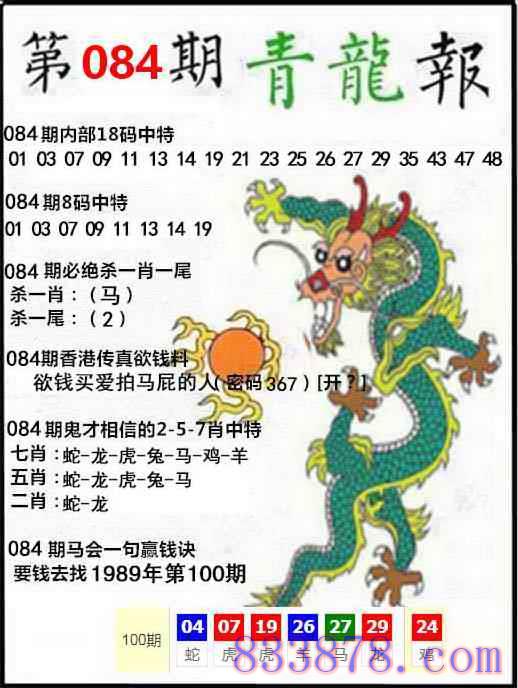 第084期青龍報
084期内部18码中特
01 03 07 09 11 13 14 19 21 23 25 26 27 29 35 43 47 48
084期8码中特
01 03 07 09 11 13 14 19
084期必绝杀一肖一尾
杀一肖：（马）
杀一尾：（2）
084期香港传真欲钱料
欲钱买爱拍马屁的人(密码367)[开?]
084期鬼才相信的2-5-7肖中特
七肖：蛇-龙-虎-兔-马-鸡-羊
五肖：蛇-龙-虎-兔-马
二肖：蛇-龙
084期马会一句赢钱诀
要钱去找1989年第100期
100期 04 07 19 26 27 29 24
蛇 虎 虎 羊 马 龙 鸡
833878.com